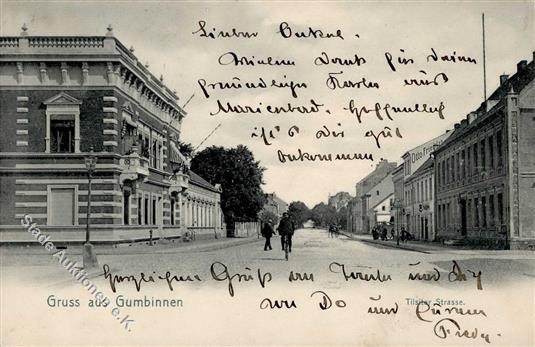 Lieber Onkel.
Vielen Dank für deine
freundliche Karte aus
Marienbad. Hoffentlich
ist's Dir gut
bekommen
Otto
Herzlichen Gruß an Tante und Dich
von Do und Eurem
Gruss aus Gumbinnen
Tilsiter Strasse.
Stade Auktionen